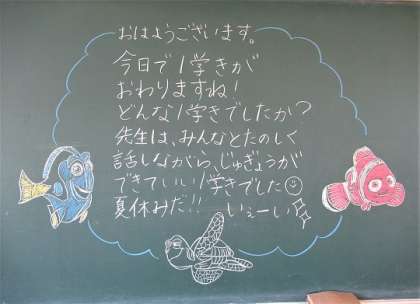 おはようございます。
今日で1学きが
おわりますね!
どんな1学きでしたか?
先生は、みんなとたのしく
話しながら、じゅぎょうが
できていい1学きでした
夏休みだ!! いぇーい